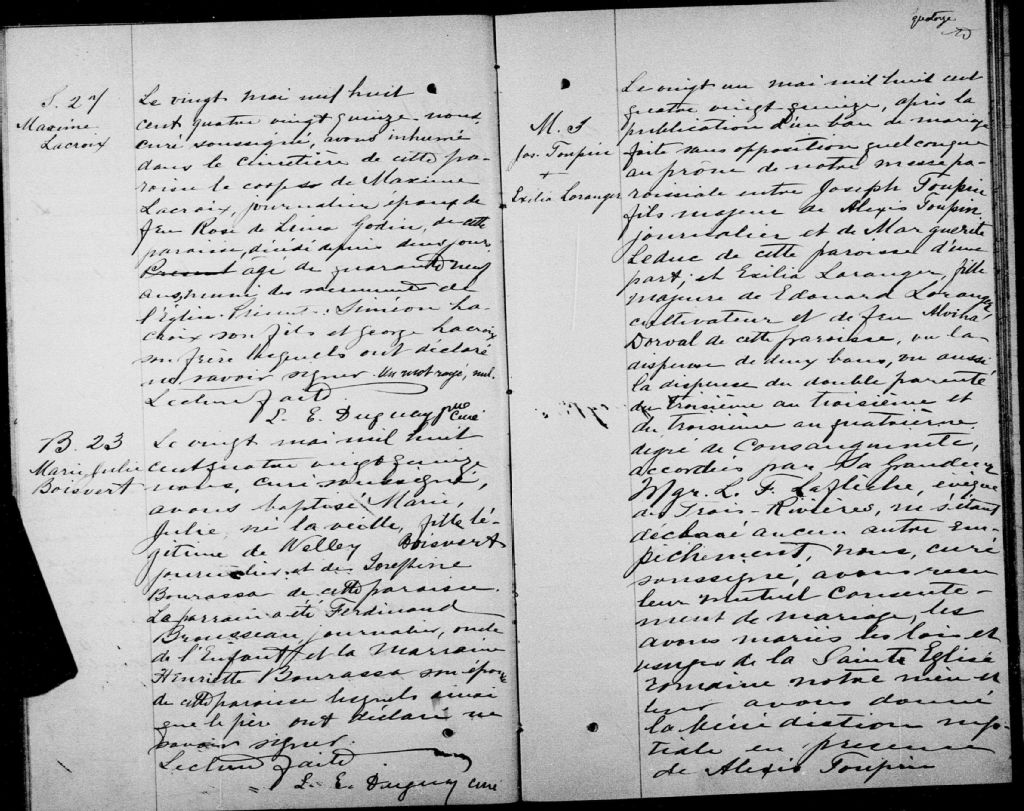 S. 27
Maxime
Lacroix
Le vingt mai mil huit
cent quatre vingt quinze nous
curé soussigné, avons inhumé
dans le cimetière de cette pa-
roisse le corps de Maxime
Lacroix, journalier époux de
feu Rose de Lima Godin, de cette
paroisse, décédé depuis deux jours
âgé de quarante neuf
ans, muni des sacrements de
l'Église. Présents: Siméon La-
croix son fils et George Lacroix
son frère lesquels ont déclaré
ne savoir signer. Un mot rayé, nul.
Lecture faite
L. E. Duguay ptre
Curé
B. 23
Marie Julie
Boisvert
Le vingt mai mil huit
cent quatre vingt quinze
nous, curé soussigné,
avons baptisé Marie,
Julie, née la veille, fille lé-
gitime de Welley Boisvert
journalier et de Josephine
Bourassa de cette paroisse.
Le parrain a été Ferdinand
Brousseau, journalier, oncle
de l'Enfant et la marraine
Henriette Bourassa son épouse
de cette paroisse lesquels ainsi
que le père ont déclaré ne
savoir signer.
Lecture faite
L. E. Duguay curé
quatorze
M. 5
Jos. Toupin
+
Exilia Loranger
Le vingt un mai mil huit cent
quatre vingt quinze, après la
publication d'un ban de mariage
faite sans opposition quelconque
au prône de notre messe pa-
roissiale entre Joseph Toupin
fils majeur de Alexis Toupin,
journalier et de Marguerite
Leduc de cette paroisse d'une
part; et Exilia Loranger, fille
majeure de Edouard Loranger,
cultivateur et de feu Alvina
Dorval de cette paroisse, vu la
dispense de deux bans, vu aussi
la dispense du double parenté
du troisième au troisième et
du troisième au quatrième
degré de consanguinité,
accordées par Sa Grandeur
Mgr. L. F. Laflèche, évêque
des Trois-Rivières, ne s'étant
déclaré aucun autre em-
pêchement, nous, curé
soussigné, avons reçu
leur mutuel consente-
ment de mariage, les
avons mariés les lois et
usages de la Sainte Eglise
romaine notre mère et
leur avons donné
la bénédiction nup-
tiale en présence
de Alexis Toupin